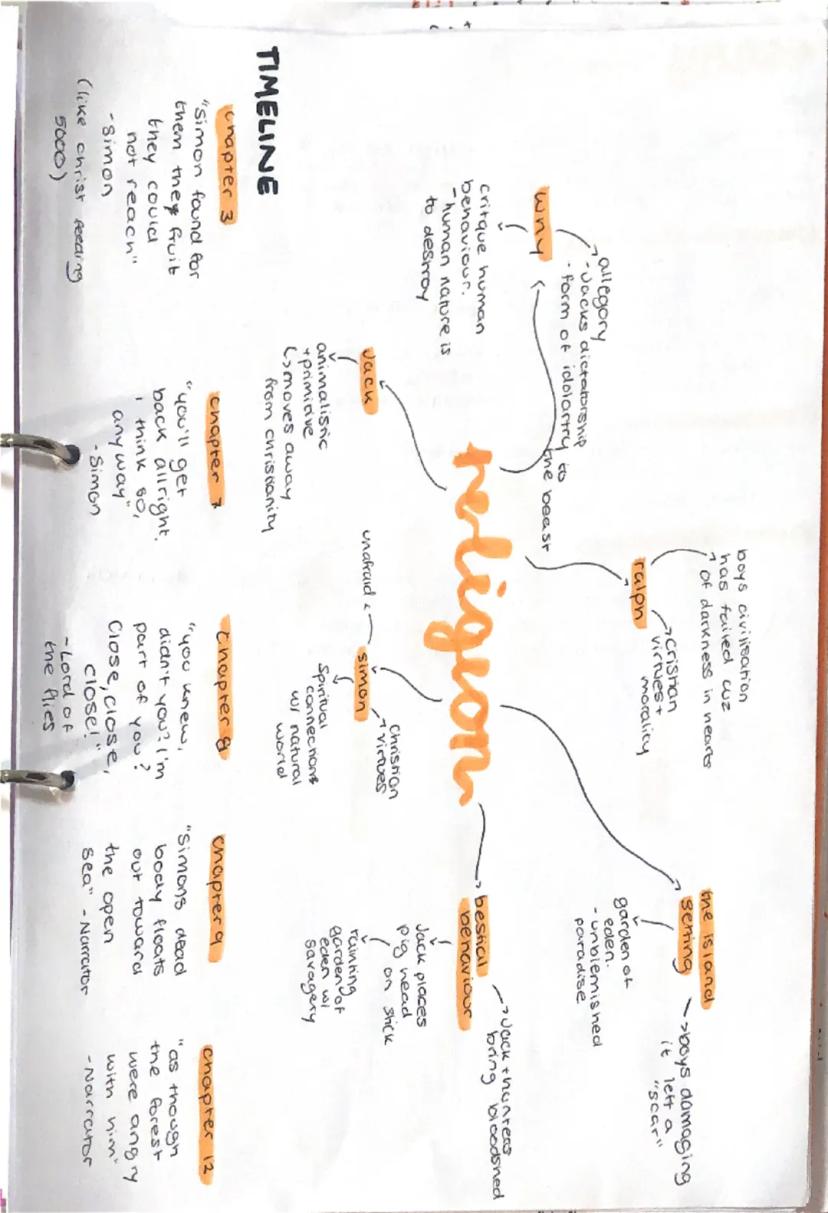 religion
why
allegory
- Jacks dictatorship
- form of idolartry to
the beast
critque human
behaviour.
- human nature is
to destroy
ralph
boys civilisation
has failed cuz
of darkness in hearts
cristian
virtues +
morality
the island
setting
garden of
eden.
- unblemished
paradise
boys damaging
it left a
"scar"
Jack
animalistic
+ primitive
↳ moves away
from christianity
simon
unafraid
christian
virtues
spiritual
connections
w/ natural
world
bestial
behaviour
Jack + hunters
bring bloodshed
Jack places
pig head
on stick
tainting
garden of
eden w/
savagery
TIMELINE
chapter 3
"simon found for
them they fruit
they could
not reach"
- Simon
(like christ feeding
5000)
chapter 7
"you'll get
back allright.
I think so,
anyway"
- Simon
chapter 8
"you knew,
didn't you? I'm
part of you?
Close, close,
close!"
- Lord of
the flies
chapter 9
"simons dead
body floats
out toward
the open
sea" - Narrator
chapter 12
"as though
the forest
were angry
with him"
- Narrator